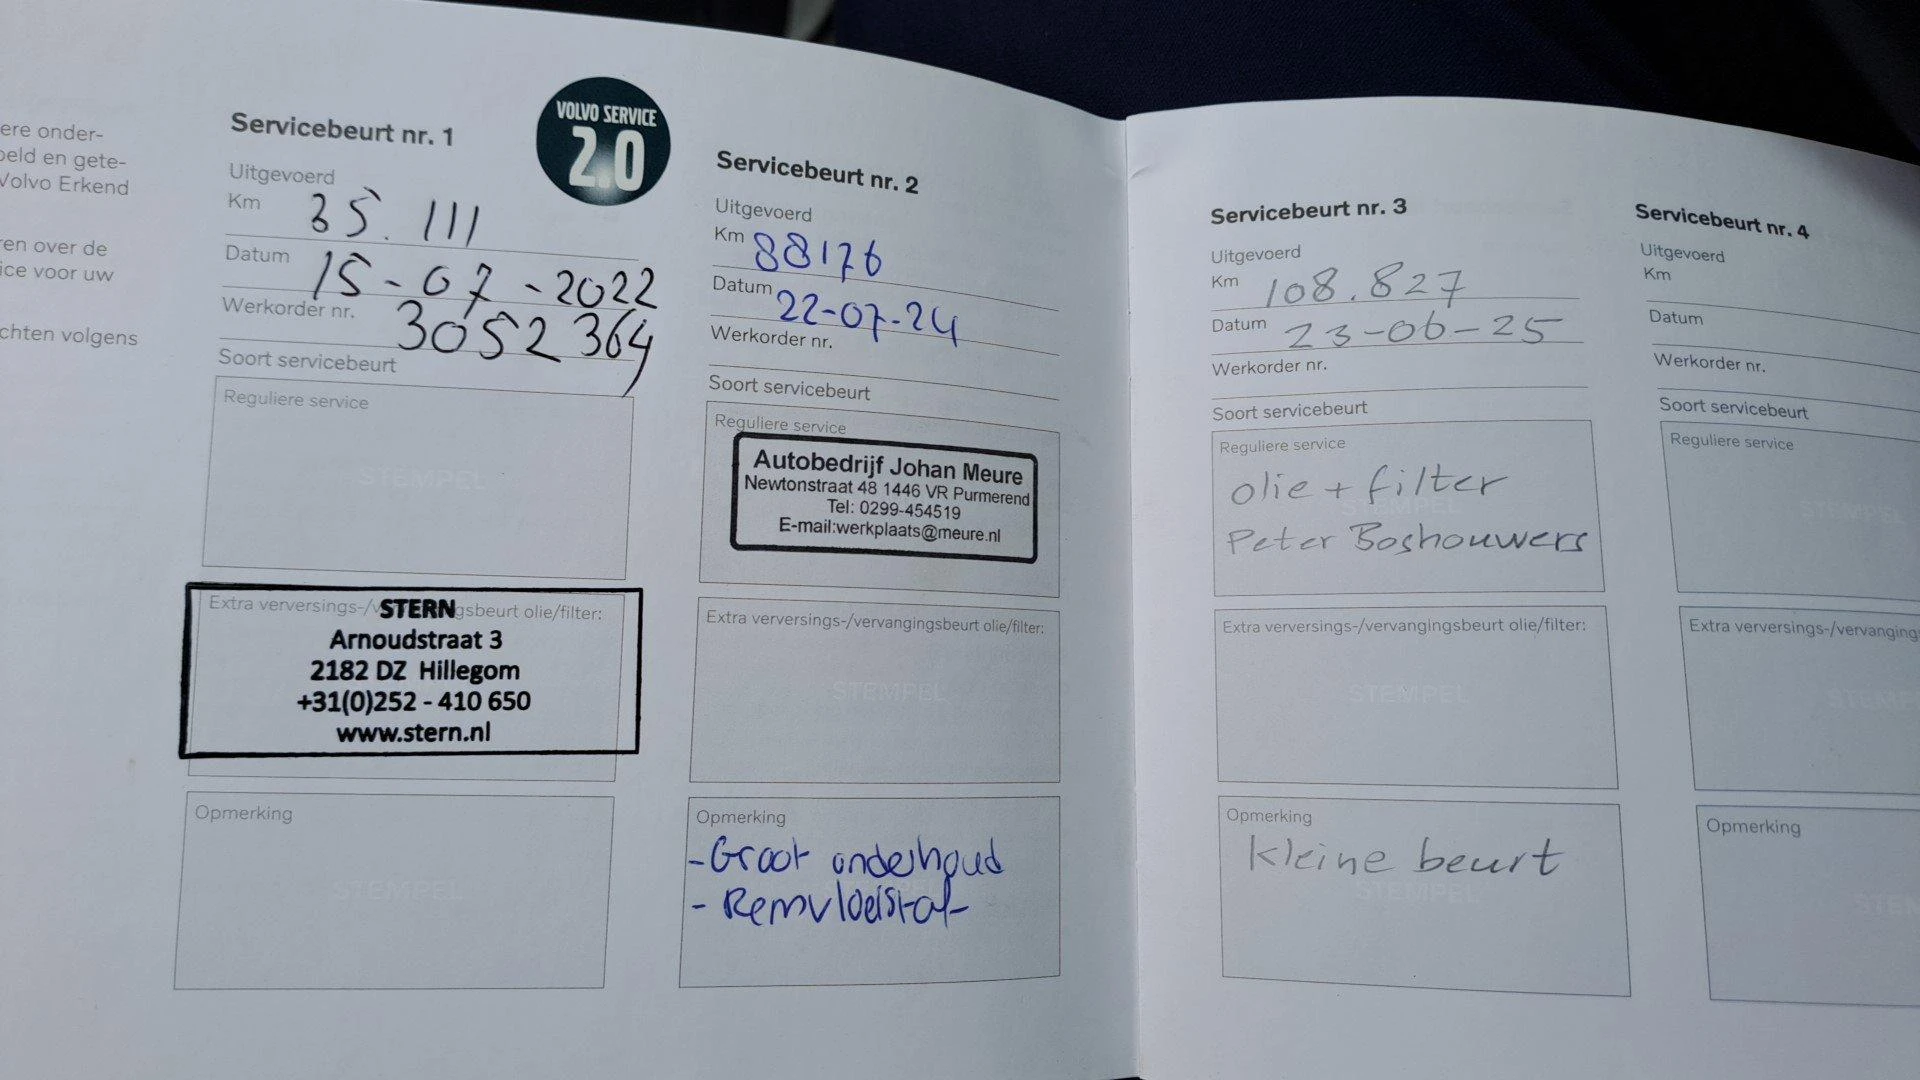 ere onder-
eld en gete-
Volvo Erkend
en over de
ice voor uw
chten volgens
Servicebeurt nr. 1
VOLVO SERVICE
2.0
Uitgevoerd
Km 35.111
Datum 15-07-2022
Werkorder nr. 3052364
Soort servicebeurt
Reguliere service
STEMPEL
Extra verversings-/v gsbeurt olie/filter:
STERN
Arnoudstraat 3
2182 DZ Hillegom
+31(0)252 - 410 650
www.stern.nl
Opmerking
STEMPEL
Servicebeurt nr. 2
Uitgevoerd
Km 88176
Datum 22-07-24
Werkorder nr.
Soort servicebeurt
Reguliere service
Autobedrijf Johan Meure
Newtonstraat 48 1446 VR Purmerend
Tel: 0299-454519
E-mail:werkplaats@meure.nl
Extra verversings-/vervangingsbeurt olie/filter:
STEMPEL
Opmerking
- Groot onderhoud
- Remvloeistof
Servicebeurt nr. 3
Uitgevoerd
Km 108.827
Datum 23-06-25
Werkorder nr.
Soort servicebeurt
Reguliere service
olie + filter
STEMPEL
Peter Boshouwers
Extra verversings-/vervangingsbeurt olie/filter:
STEMPEL
Opmerking
kleine beurt
STEMPEL
Servicebeurt nr. 4
Uitgevoerd
Km
Datum
Werkorder nr.
Soort servicebeurt
Reguliere service
STEMPEL
Extra verversings-/vervanging
STEMP
Opmerking
STEM